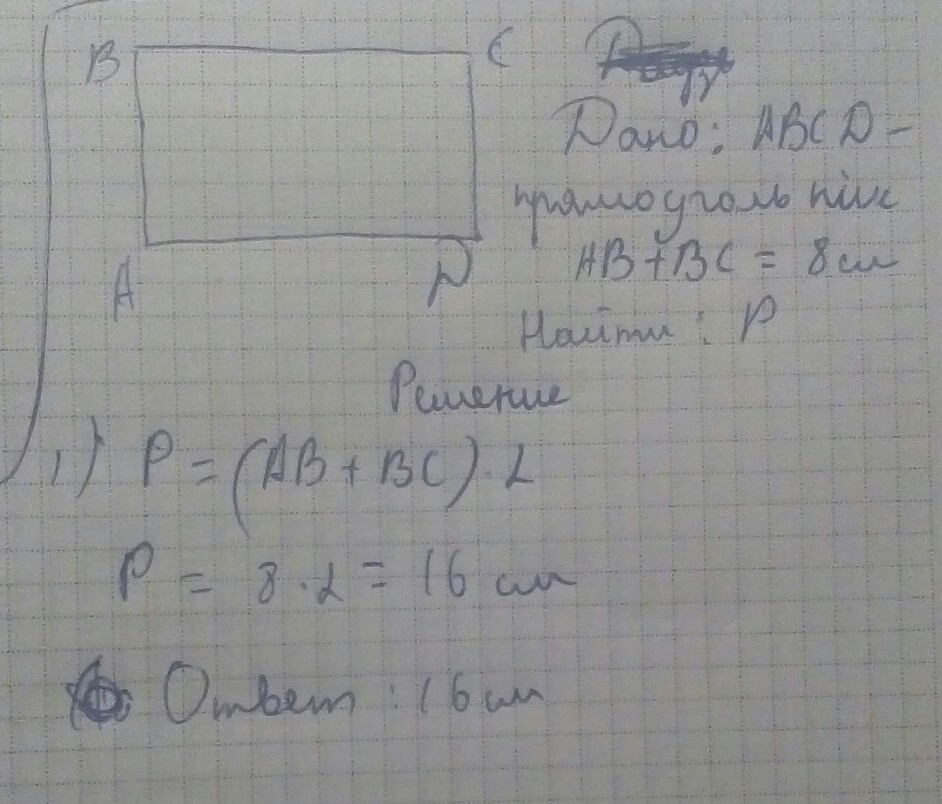 B C
Дано: ABCD-
прямоугольник
AB+BC = 8 см
A D
Найти: P
Решение
1) P = (AB + BC) · 2
P = 8 · 2 = 16 см
Ответ: 16 см